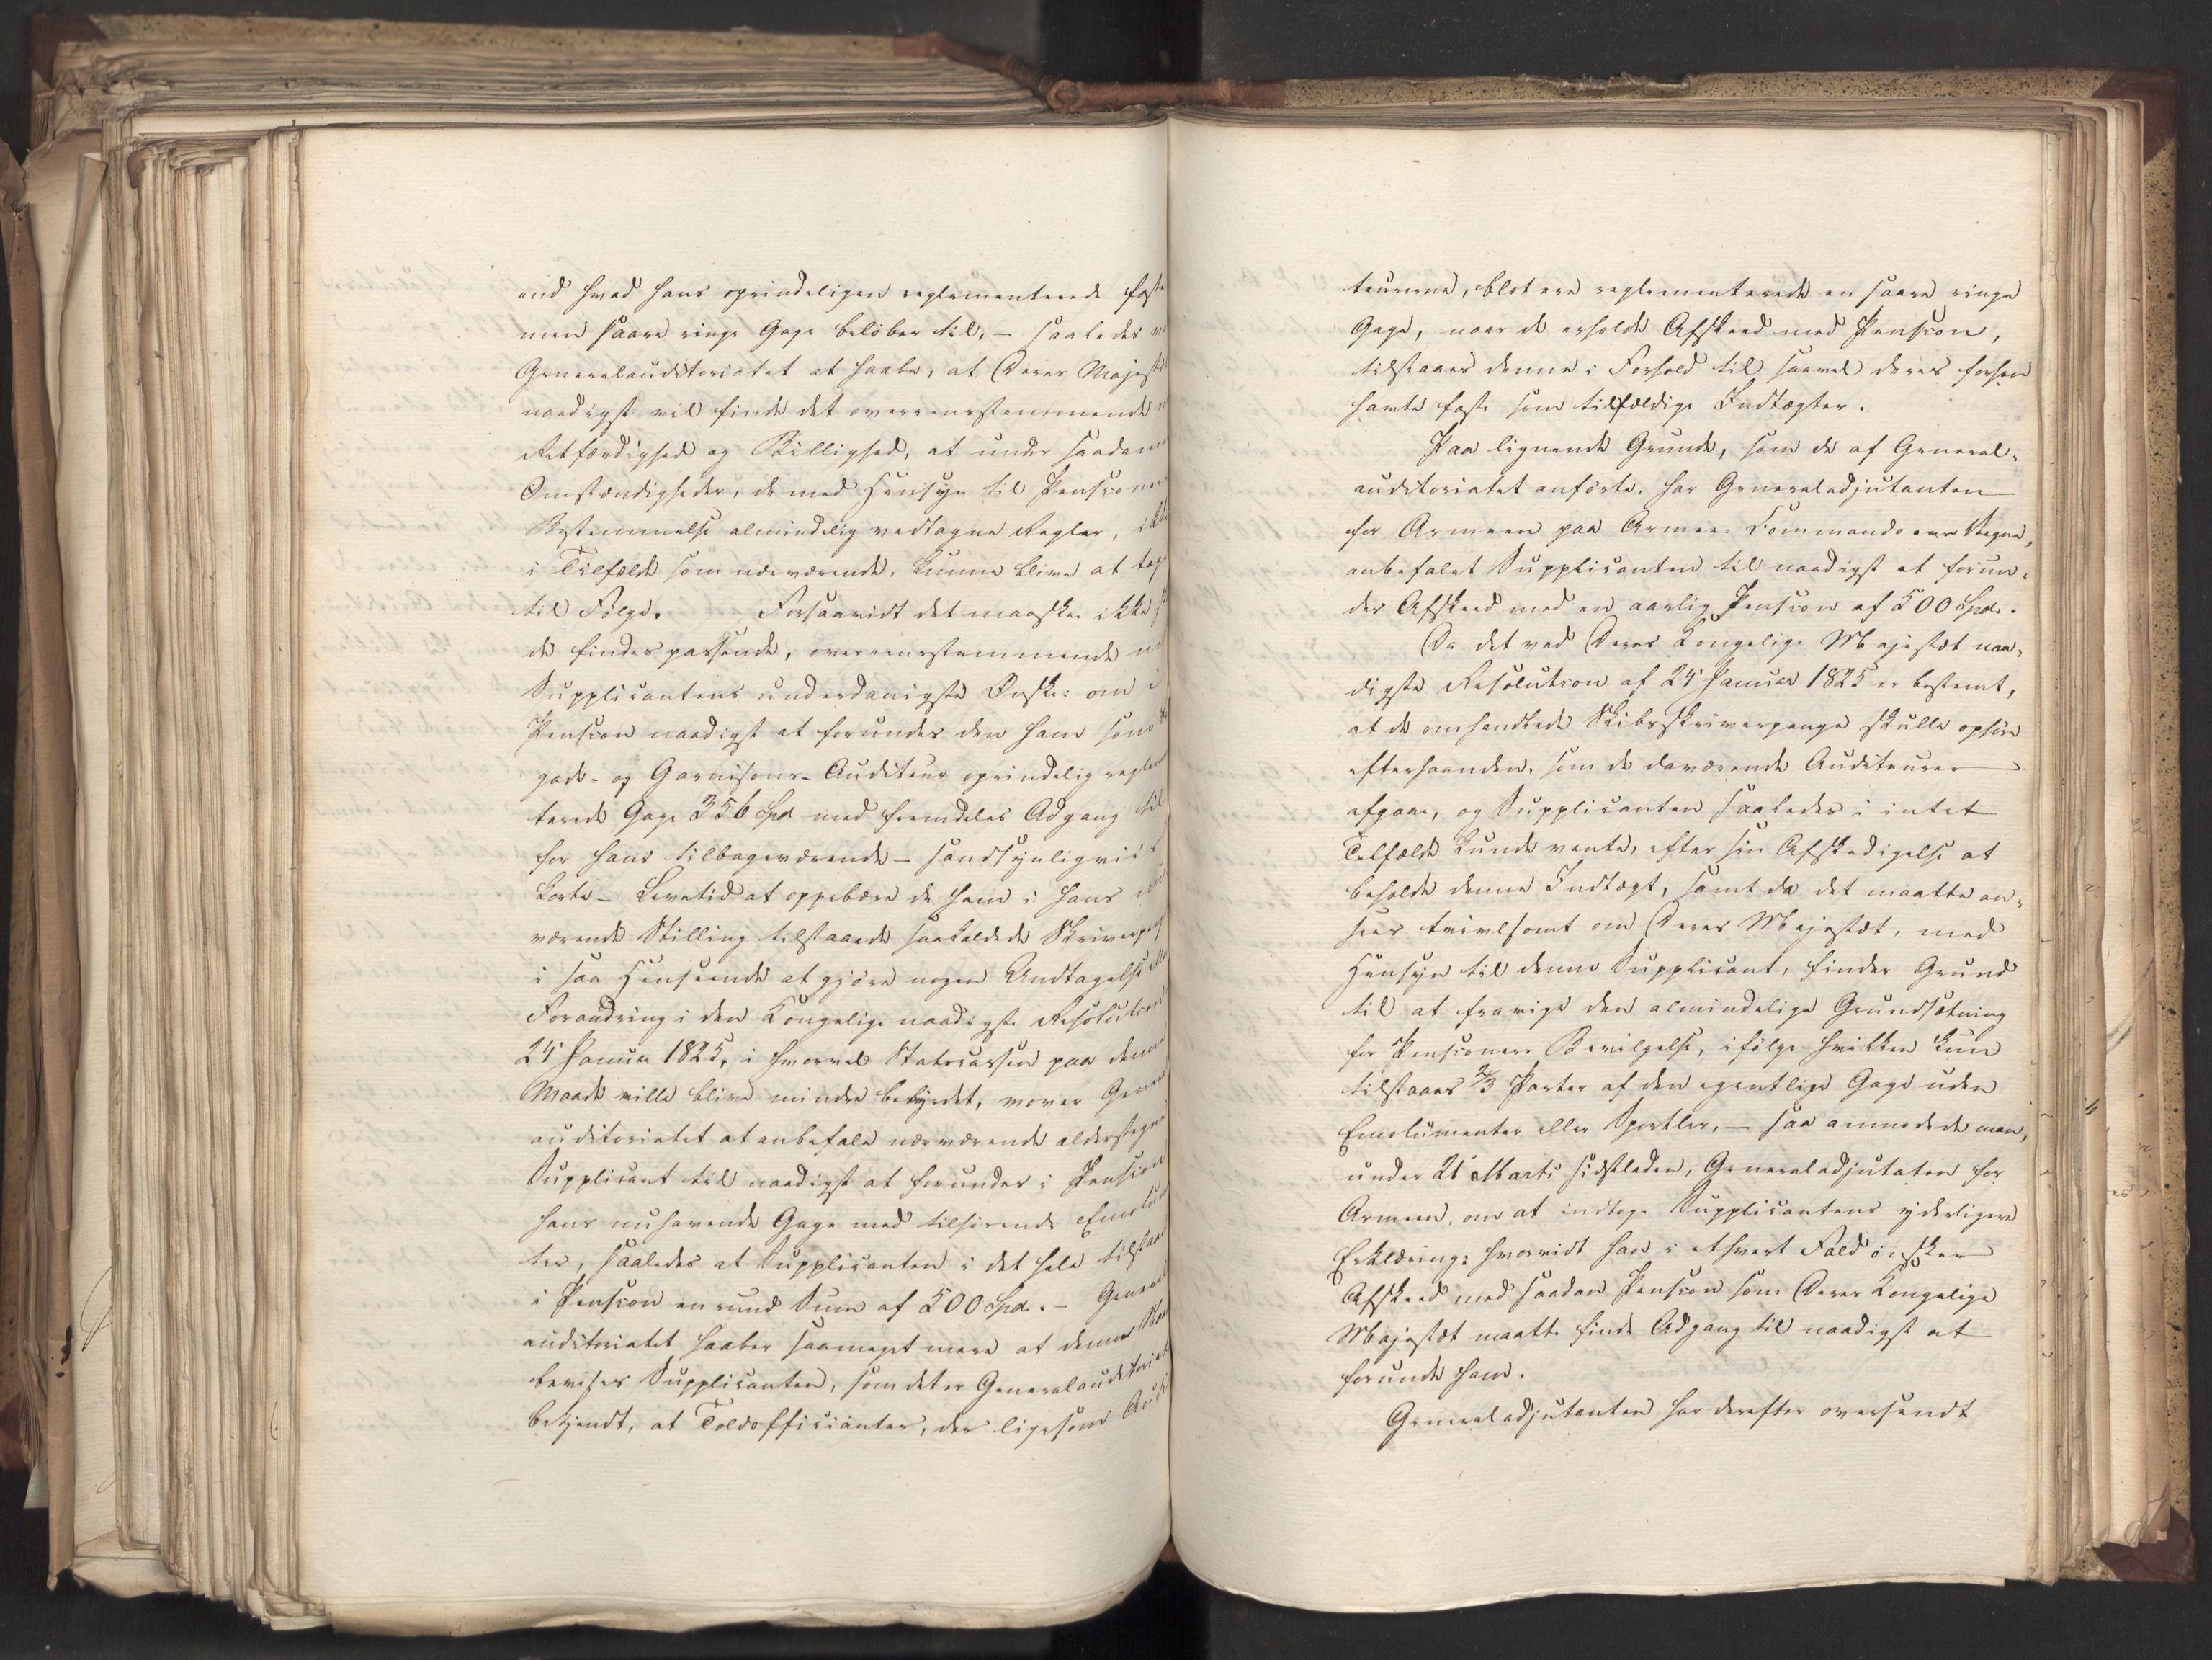 end hvad hans oprindeligen reglementerede faste
men saare ringe Gage beløber til, – saaledes
Generalauditoriatet at haabe, at Deres Majestæt
naadigst vil finde det overeensstemmende
Retfærdighed og Billighed, at under saadanne
Omstændigheder, de med Hensyn til Pensioners
Bestemmelse almindelig vedtagne Regler, ikke
i Tilfælde som nærværende, kunne blive at tage
til Følge. Forsaavidt det maaskee ikke
de findes passende, overeensstemmende
Supplicantens underdanigste Ønske: om i
Pension naadigst at forundes den ham som
gade- og Garnisons-Auditeur oprindelig reglemen
terede Gage 356 Spd med fremdeles Adgang til
for hans tilbageværende – sandsynligviis
korte – Levetid at oppebære de ham i hans nu
værende Stilling tilstaaede saakaldede Skriverpenge
i saa Henseende at gjøre nogen Undtagelse eller
Forandring i den Kongelige naadigste Resolution
24 Januar 1825, i hvorvel Statscassen paa denne
Maade ville blive mindre bebyrdet, vover General
auditoriatet at anbefale nærværende alderstegne
Supplicant til naadigst at forundes i Pension
hans nuhavende Gage med tilhørende Emolumen
ter, saaledes at Supplicanten i det hele tilstaaes
i Pension en rund Sum af 500 Spd. – General
auditoriatet haaber saameget mere at denne
bevises Supplicanten, som det er Generalauditoriatet
bekjendt, at Toldofficianter, der ligesom Audi
teurerne, blot ere reglementerede en saare ringe
Gage, naar de erholde Afskeed med Pension,
tilstaaes denne i Forhold til saavel deres forhen
havte faste som tilfældige Indtægter.
Paa lignende Grunde, som de af General-
auditoriatet anførte, har Generaladjutanten
for Armeen paa Armee-Commandoens Vegne,
anbefalet Supplicanten til naadigst at forun-
des Afskeed med en aarlig Pension af 500 Spd.
Da det ved Deres Kongelige Majestæt naa-
digste Resolution af 24 Januar 1825 er bestemt,
at de omhandlede Skibsskriverpenge skulle ophøre
efterhaanden, som de daværende Auditeurer
afgaae, og Supplicanten saaledes i intet
Tilfælde kunde vente, efter sin Afskedigelse at
beholde denne Indtægt, samt da det maatte an-
sees tvivlsomt om Deres Majestæt, med
Hensyn til denne Supplicant, finder Grund
til at fravige den almindelige Grundsætning
for Pensioners Bevilgelse, ifølge hvilken kun
tilstaaes 2/3 Parter af den egentlige Gage uden
Emolumenter eller Sportler, – saa anmodede man,
under 21 Marts sidstleden, Generaladjutaten for
Armeen, om at indtage Supplicantens yderligere
Erklæring: hvorvidt han i ethvert Fald ønsker
Afskeed med saadan Pension som Deres Kongelige
Majestæt maatte finde Adgang til naadigst at
forunde ham.
Generaladjutanten har derefter oversendt